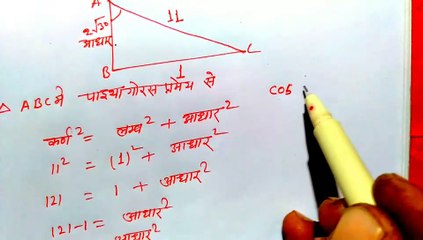 A
11
2√30
आधार
B
1
C
△ ABC में पाइथागोरस प्रमेय से
cos
कर्ण² = लम्ब² + आधार²
11² = (1)² + आधार²
121 = 1 + आधार²
121-1 = आधार²
आधार²